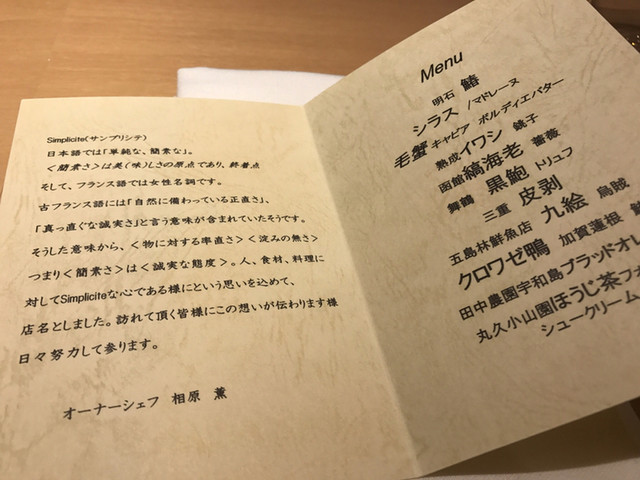 Simplicite(サンプリシテ)
日本語では「単純な、簡素な」。
<簡素さ>は美(味)しさの原点であり、終着点
そして、フランス語では女性名詞です。
古フランス語には「自然に備わっている正直さ」、
「真っ直ぐな誠実さ」と言う意味が含まれていたそうです。
そうした意味から、<物に対する率直さ><淀みの無さ>
つまり<簡素さ>は<誠実な態度>。人、食材、料理に
対してSimpliciteな心である様にという思いを込めて、
店名としました。訪れて頂く皆様にこの想いが伝わります様
日々努力して参ります。
オーナーシェフ 相原 薫
Menu
明石 鰆
シラス /マドレーヌ
毛蟹 キャビア ボルディエバター
熟成イワシ 銚子
函館縞海老 薔薇
舞鶴 黒鮑 トリュフ
三重 皮剥
五島林鮮魚店 九絵 烏賊
クロワゼ鴨 加賀蓮根
田中農園宇和島ブラッドオレ
丸久小山園ほうじ茶フォ
シュークリーム